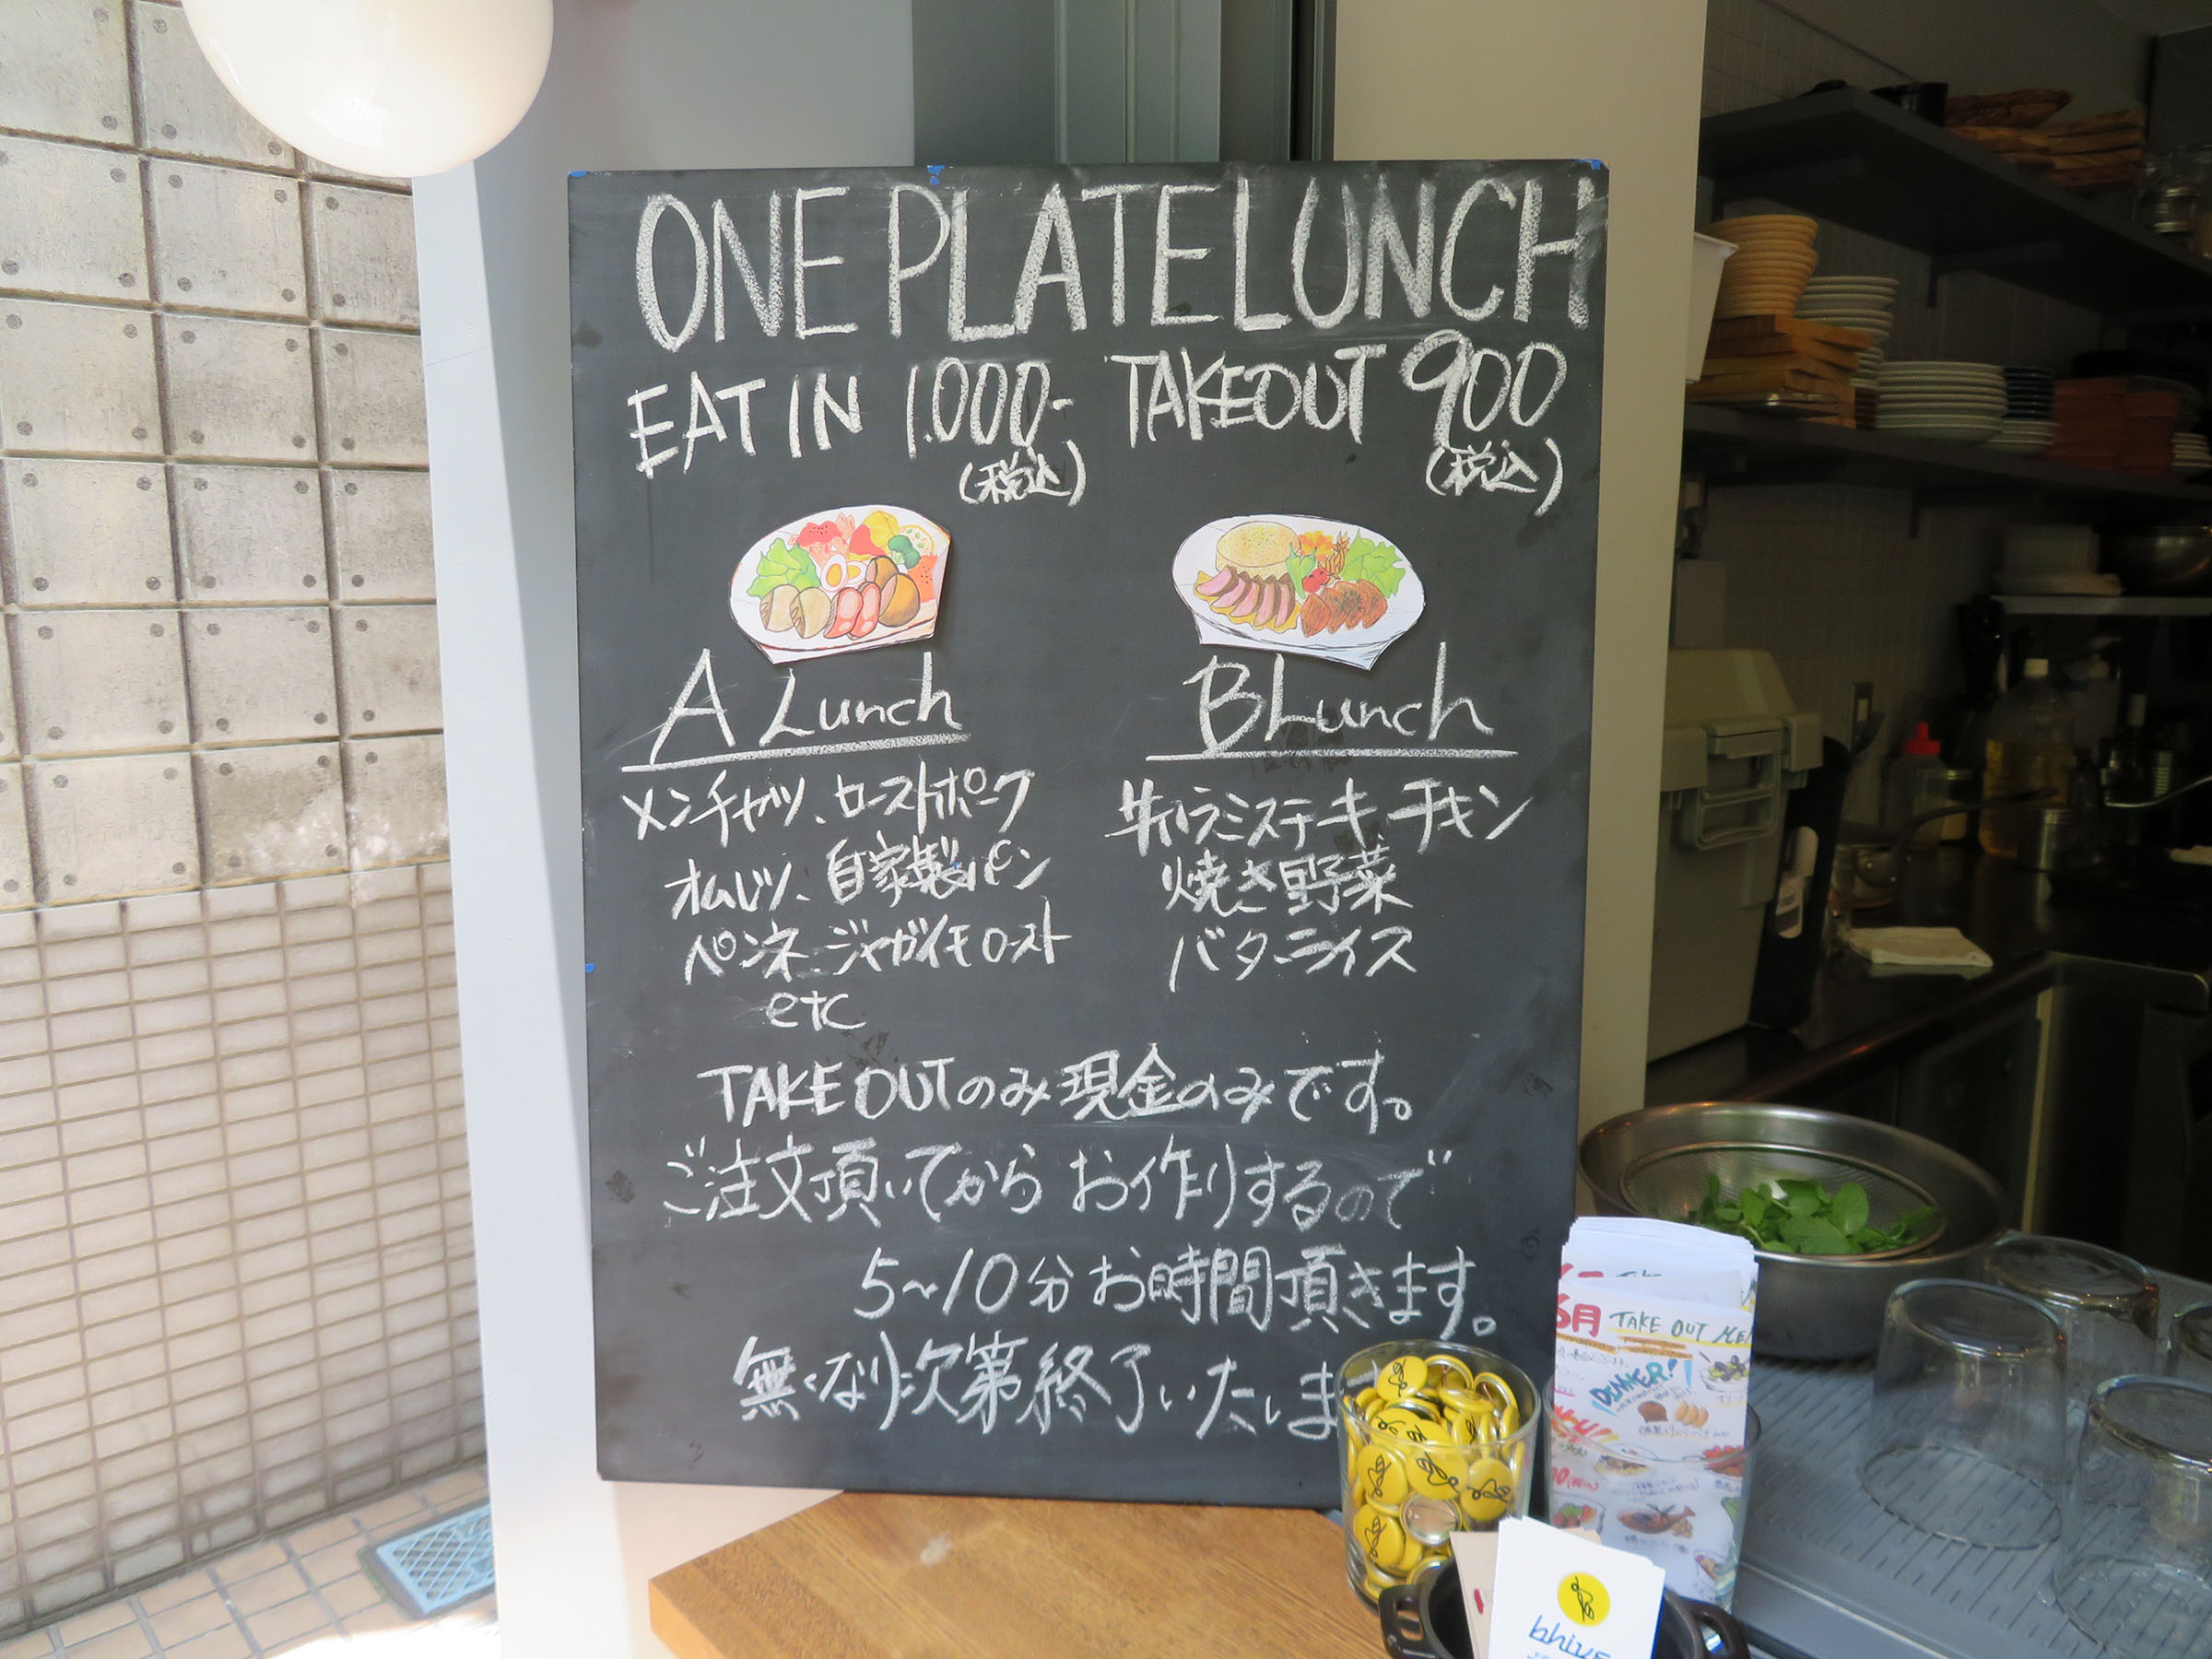 ONE PLATE LUNCH
EAT IN 1.000- TAKEOUT 900
(税込) (税込)
A Lunch
メンチカツ、ローストポーク
オムレツ、自家製パン
ペンネ、ジャガイモロースト
etc
B Lunch
牛ハラミステーキ チキン
焼き野菜
バターライス
TAKE OUTのみ現金のみです。
ご注文頂いてからお作りするので
5~10分お時間頂きます。
無くなり次第終了いたしま
6月 TAKE OUT ME
DINNER!!
bhive